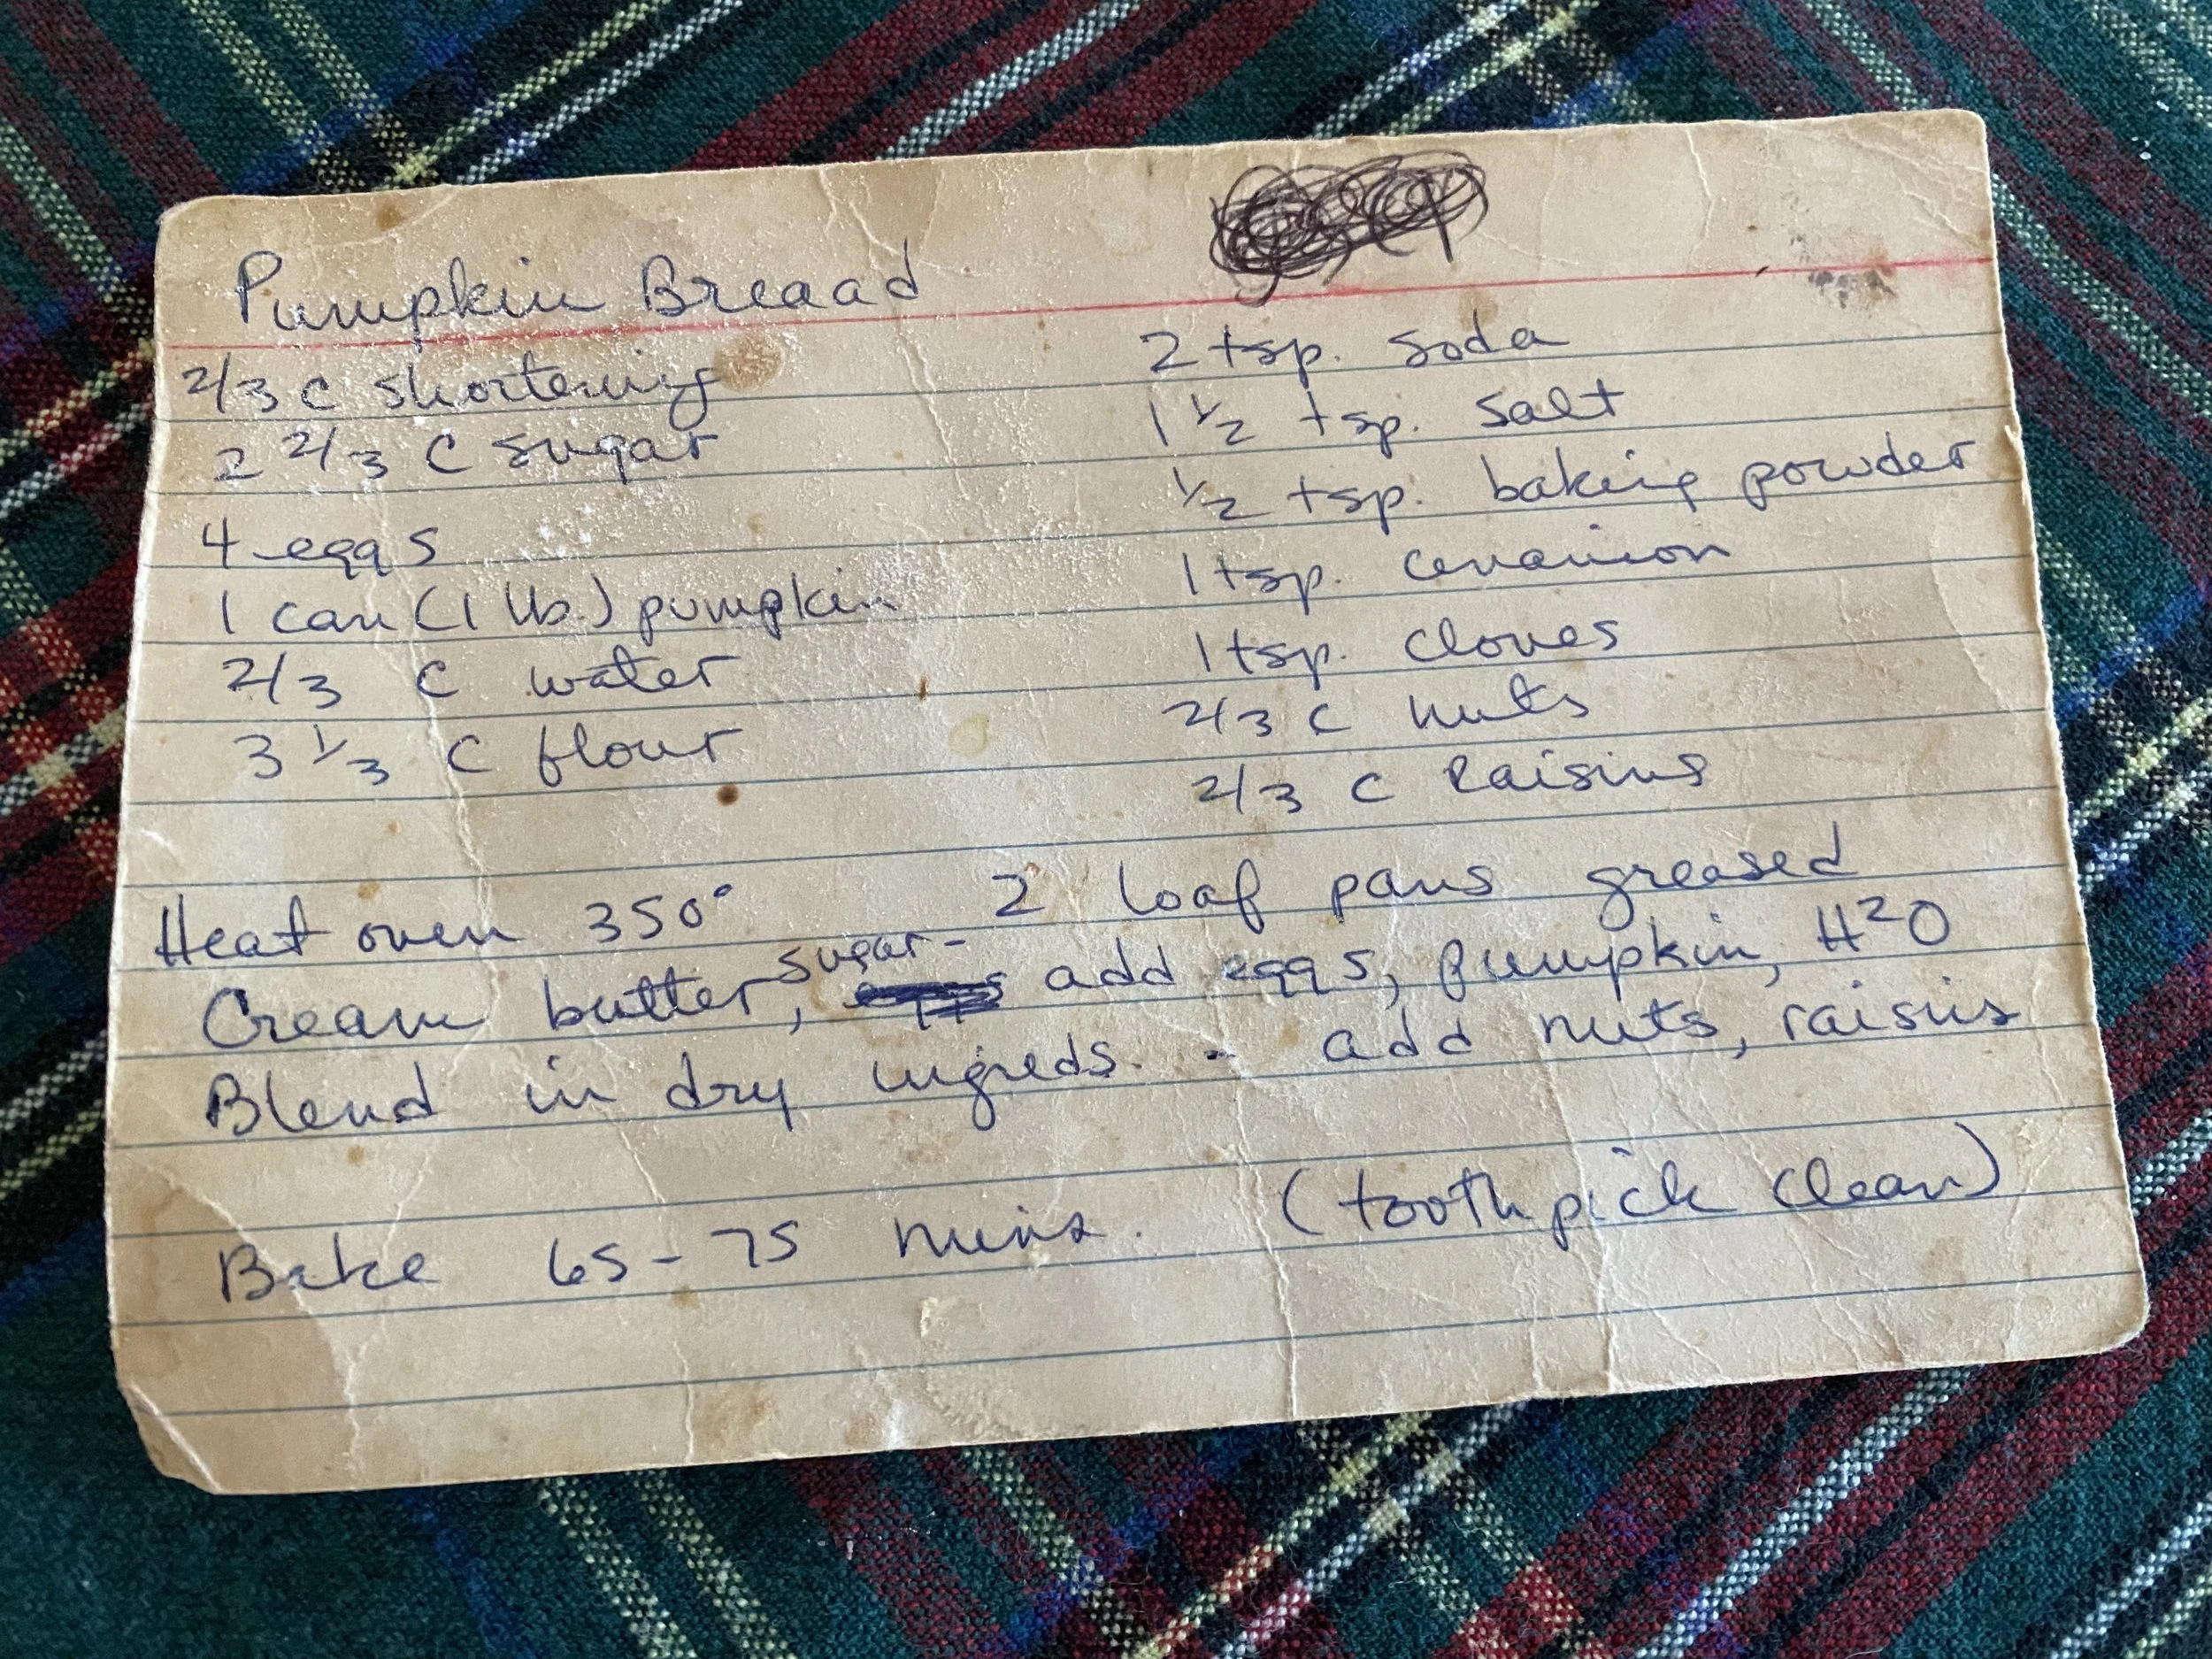 Pumpkin Breaad
2/3 C shortening
2 2/3 C sugar
4 eggs
1 can (1 lb.) pumpkin
2/3 C water
3 1/3 C flour
2 tsp. soda
1 1/2 tsp. salt
1/2 tsp. baking powder
1 tsp.
1 tsp. cloves
2/3 C nuts
2/3 C Raisins
Heat oven 350° 2 loaf pans greased
Cream butter, sugar - add eggs, pumpkin, H²O
Blend in dry ingreds. - add nuts, raisins
Bake 65-75 mins. (toothpick clean)